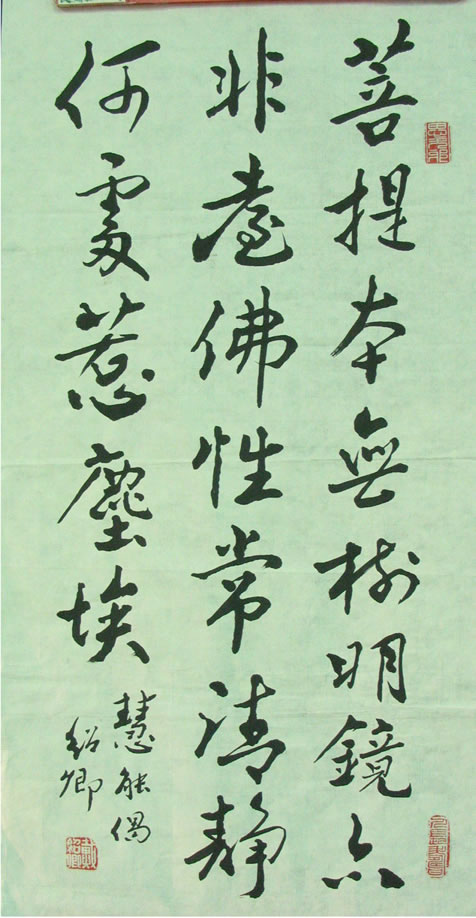 菩提本無樹明鏡亦
非臺佛性常清靜
何處惹塵埃
慧能偈
紹卿